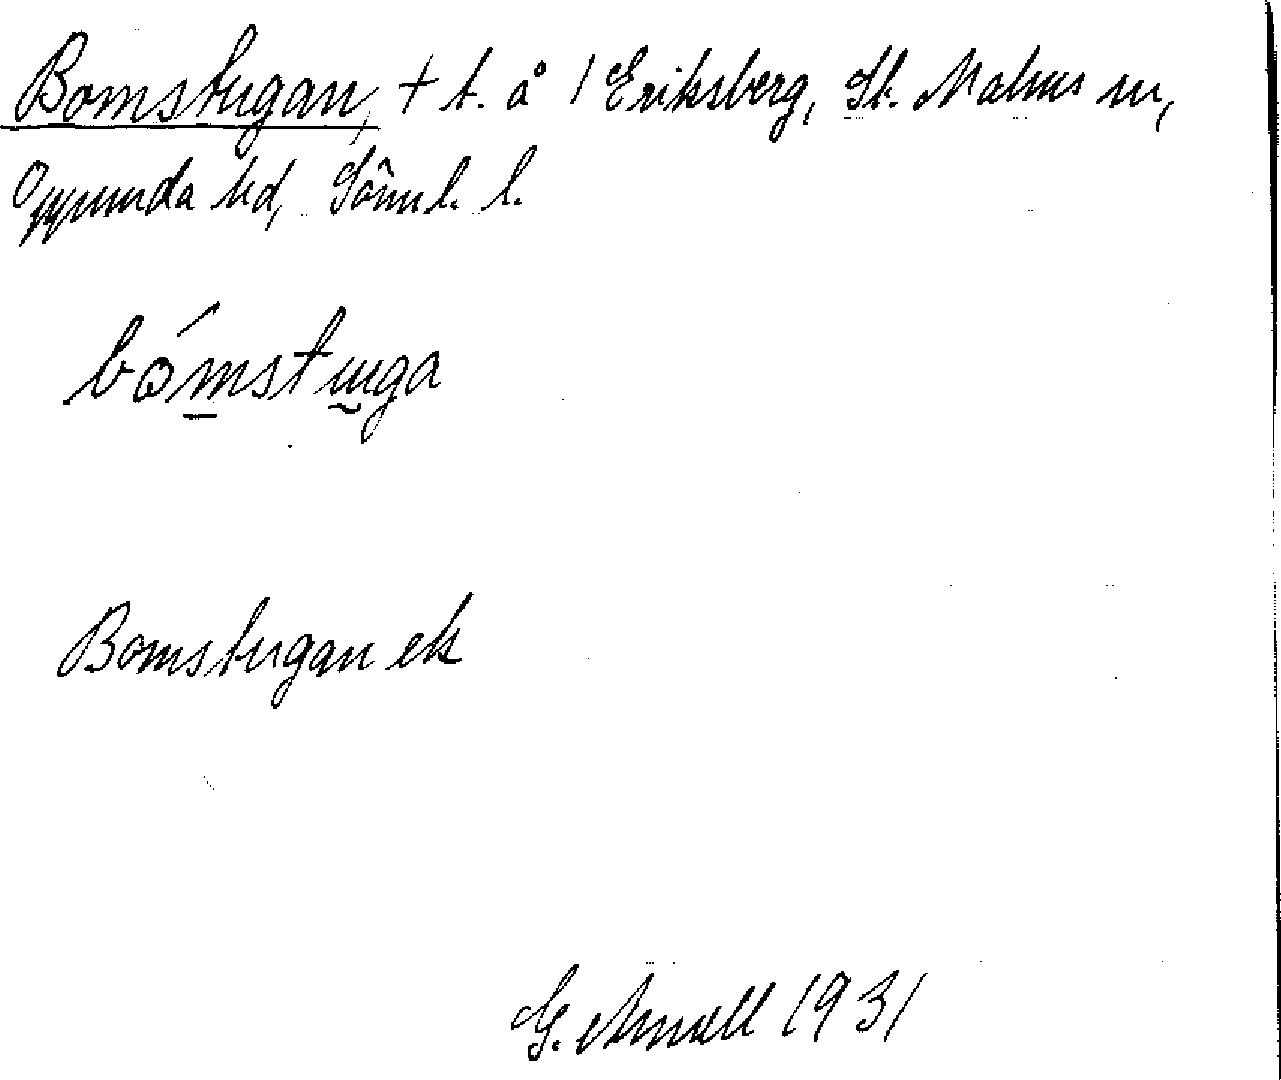 Bomstugan, + t. å 1 Eriksberg, St. Malms sn,
Oppunda hd, Söderml. l.
bómstuga
Bomstugan ek
G. Arnell 1931